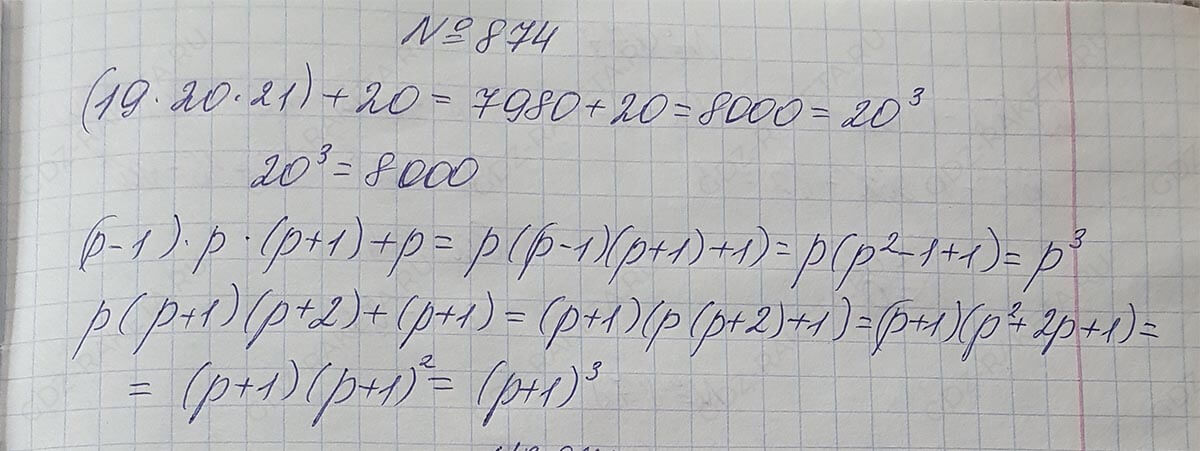 № 874
(19·20·21)+20 = 7980+20=8000=20³
20³=8000
(p-1)·p·(p+1)+p= p((p-1)(p+1)+1)=p(p²-1+1)=p³
p(p+1)(p+2)+(p+1)=(p+1)(p(p+2)+1)=(p+1)(p²+2p+1)=
= (p+1)(p+1)²= (p+1)³